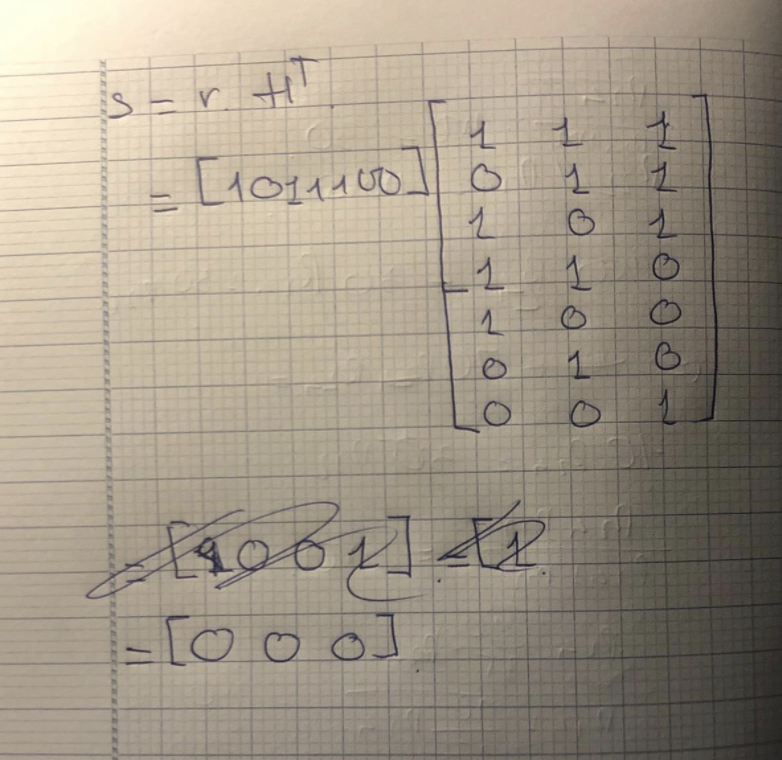 s = r. H^T
= [1011100] [1 1 1
0 1 1
1 0 1
1 1 0
1 0 0
0 1 0
0 0 1]
= [1 0 0 1] = [1
= [0 0 0]